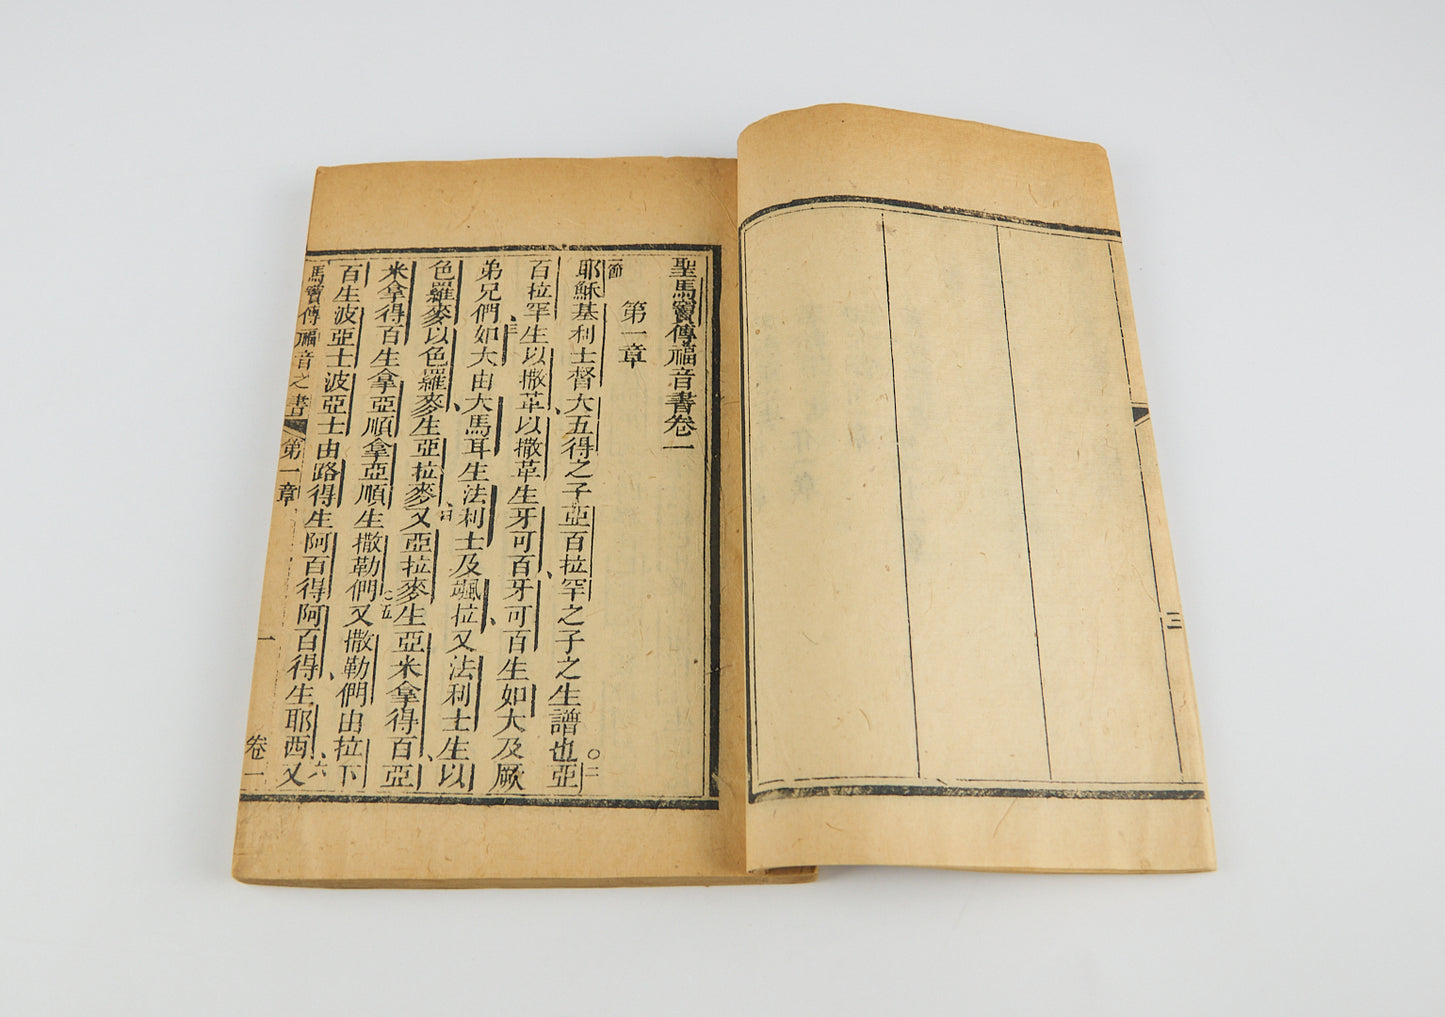 聖馬竇傳福音書卷一
第一章
一節
耶穌基利士督大五得之子亞百拉罕之子之生譜也〇二亞
百拉罕生以撒革以撒革生牙可百牙可百生如大及厥
弟兄們三如大由大馬耳生法利士及颯拉又法利士生以
色羅麥以色羅麥生亞拉麥四又亞拉麥生亞米拿得百亞
米拿得百生拿亞順拿亞順生撒勒們五又撒勒們由拉下
百生波亞士波亞士由路得生阿百得阿百得生耶西六又
馬竇傳福音之書 第一章 一 卷一
三